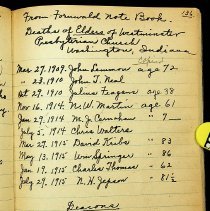 136
From Fornwald Note Book.
Deaths of Elders of Westminster
Presbyterian Church
Washington, Indiana
Mar 27. 1909. John Lemmon age 72
" 23. 1910 John T. Neal
Oct 29. 1910 Julius Feagans age 78
Nov 16. 1914. M. W. Martin age 61
Jan 29. 1914 M. J. Carnahan " 7
July 5, 1914 Chris Walters
Mar 29. 1915 David Kribs " 83
May 13. 1915 Wm Springer " 86
Jan 19. 1915 Charles Thomas " 62
July 29. 1915 N. H. Jepson " 81½
Deacons